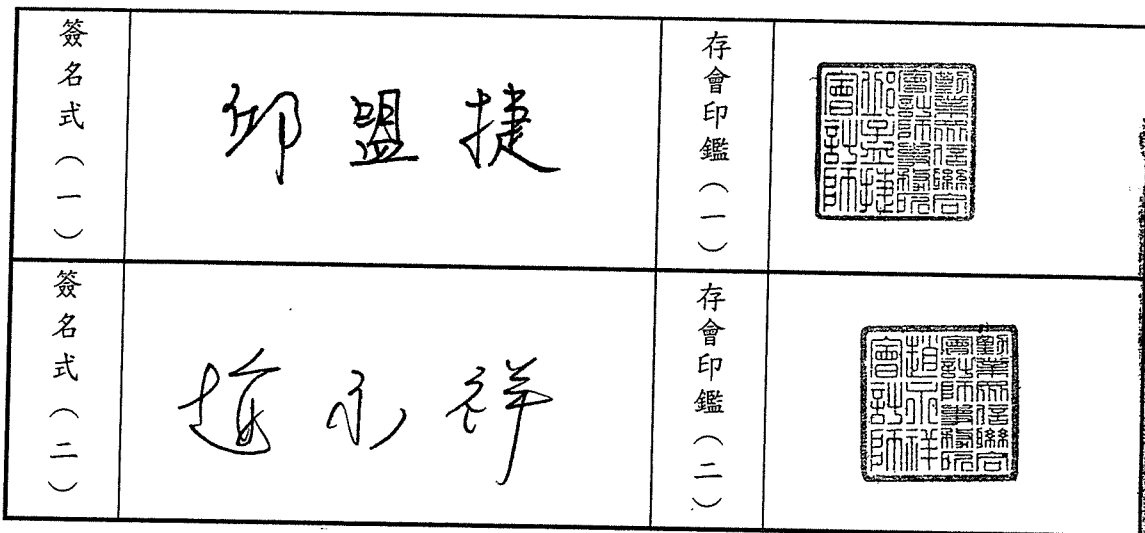 簽名式（一）
邱盟捷
存會印鑑（一）
勤業眾信聯合
會計師事務所
邱孟捷
會計師
簽名式（二）
趙永祥
存會印鑑（二）
勤業眾信聯合
會計師事務所
趙永祥
會計師